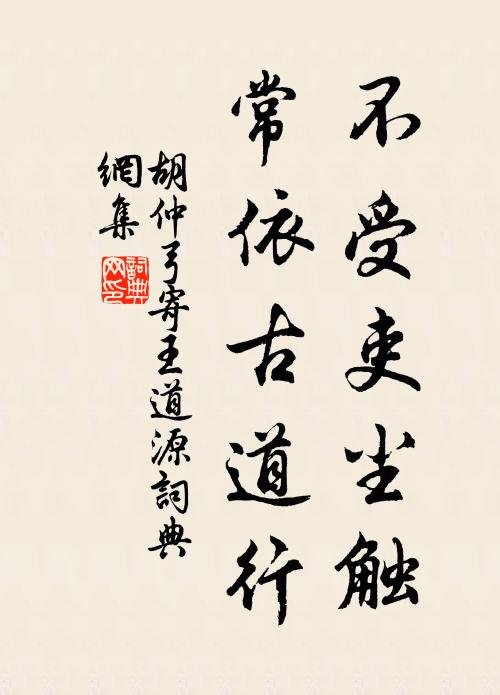 不受吏尘触
常依古道行
胡仲弓寄王道源詞典
網集
詞典
网印